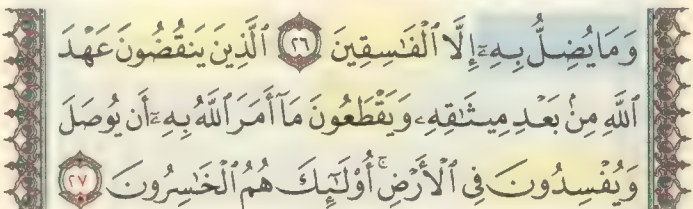 وَمَا يُضِلُّ بِهِۦٓ إِلَّا ٱلْفَٰسِقِينَ ٢٦ ٱلَّذِينَ يَنقُضُونَ عَهْدَ
ٱللَّهِ مِنۢ بَعْدِ مِيثَٰقِهِۦ وَيَقْطَعُونَ مَآ أَمَرَ ٱللَّهُ بِهِۦٓ أَن يُوصَلَ
وَيُفْسِدُونَ فِى ٱلْأَرْضِ ۚ أُو۟لَٰٓئِكَ هُمُ ٱلْخَٰسِرُونَ ٢٧